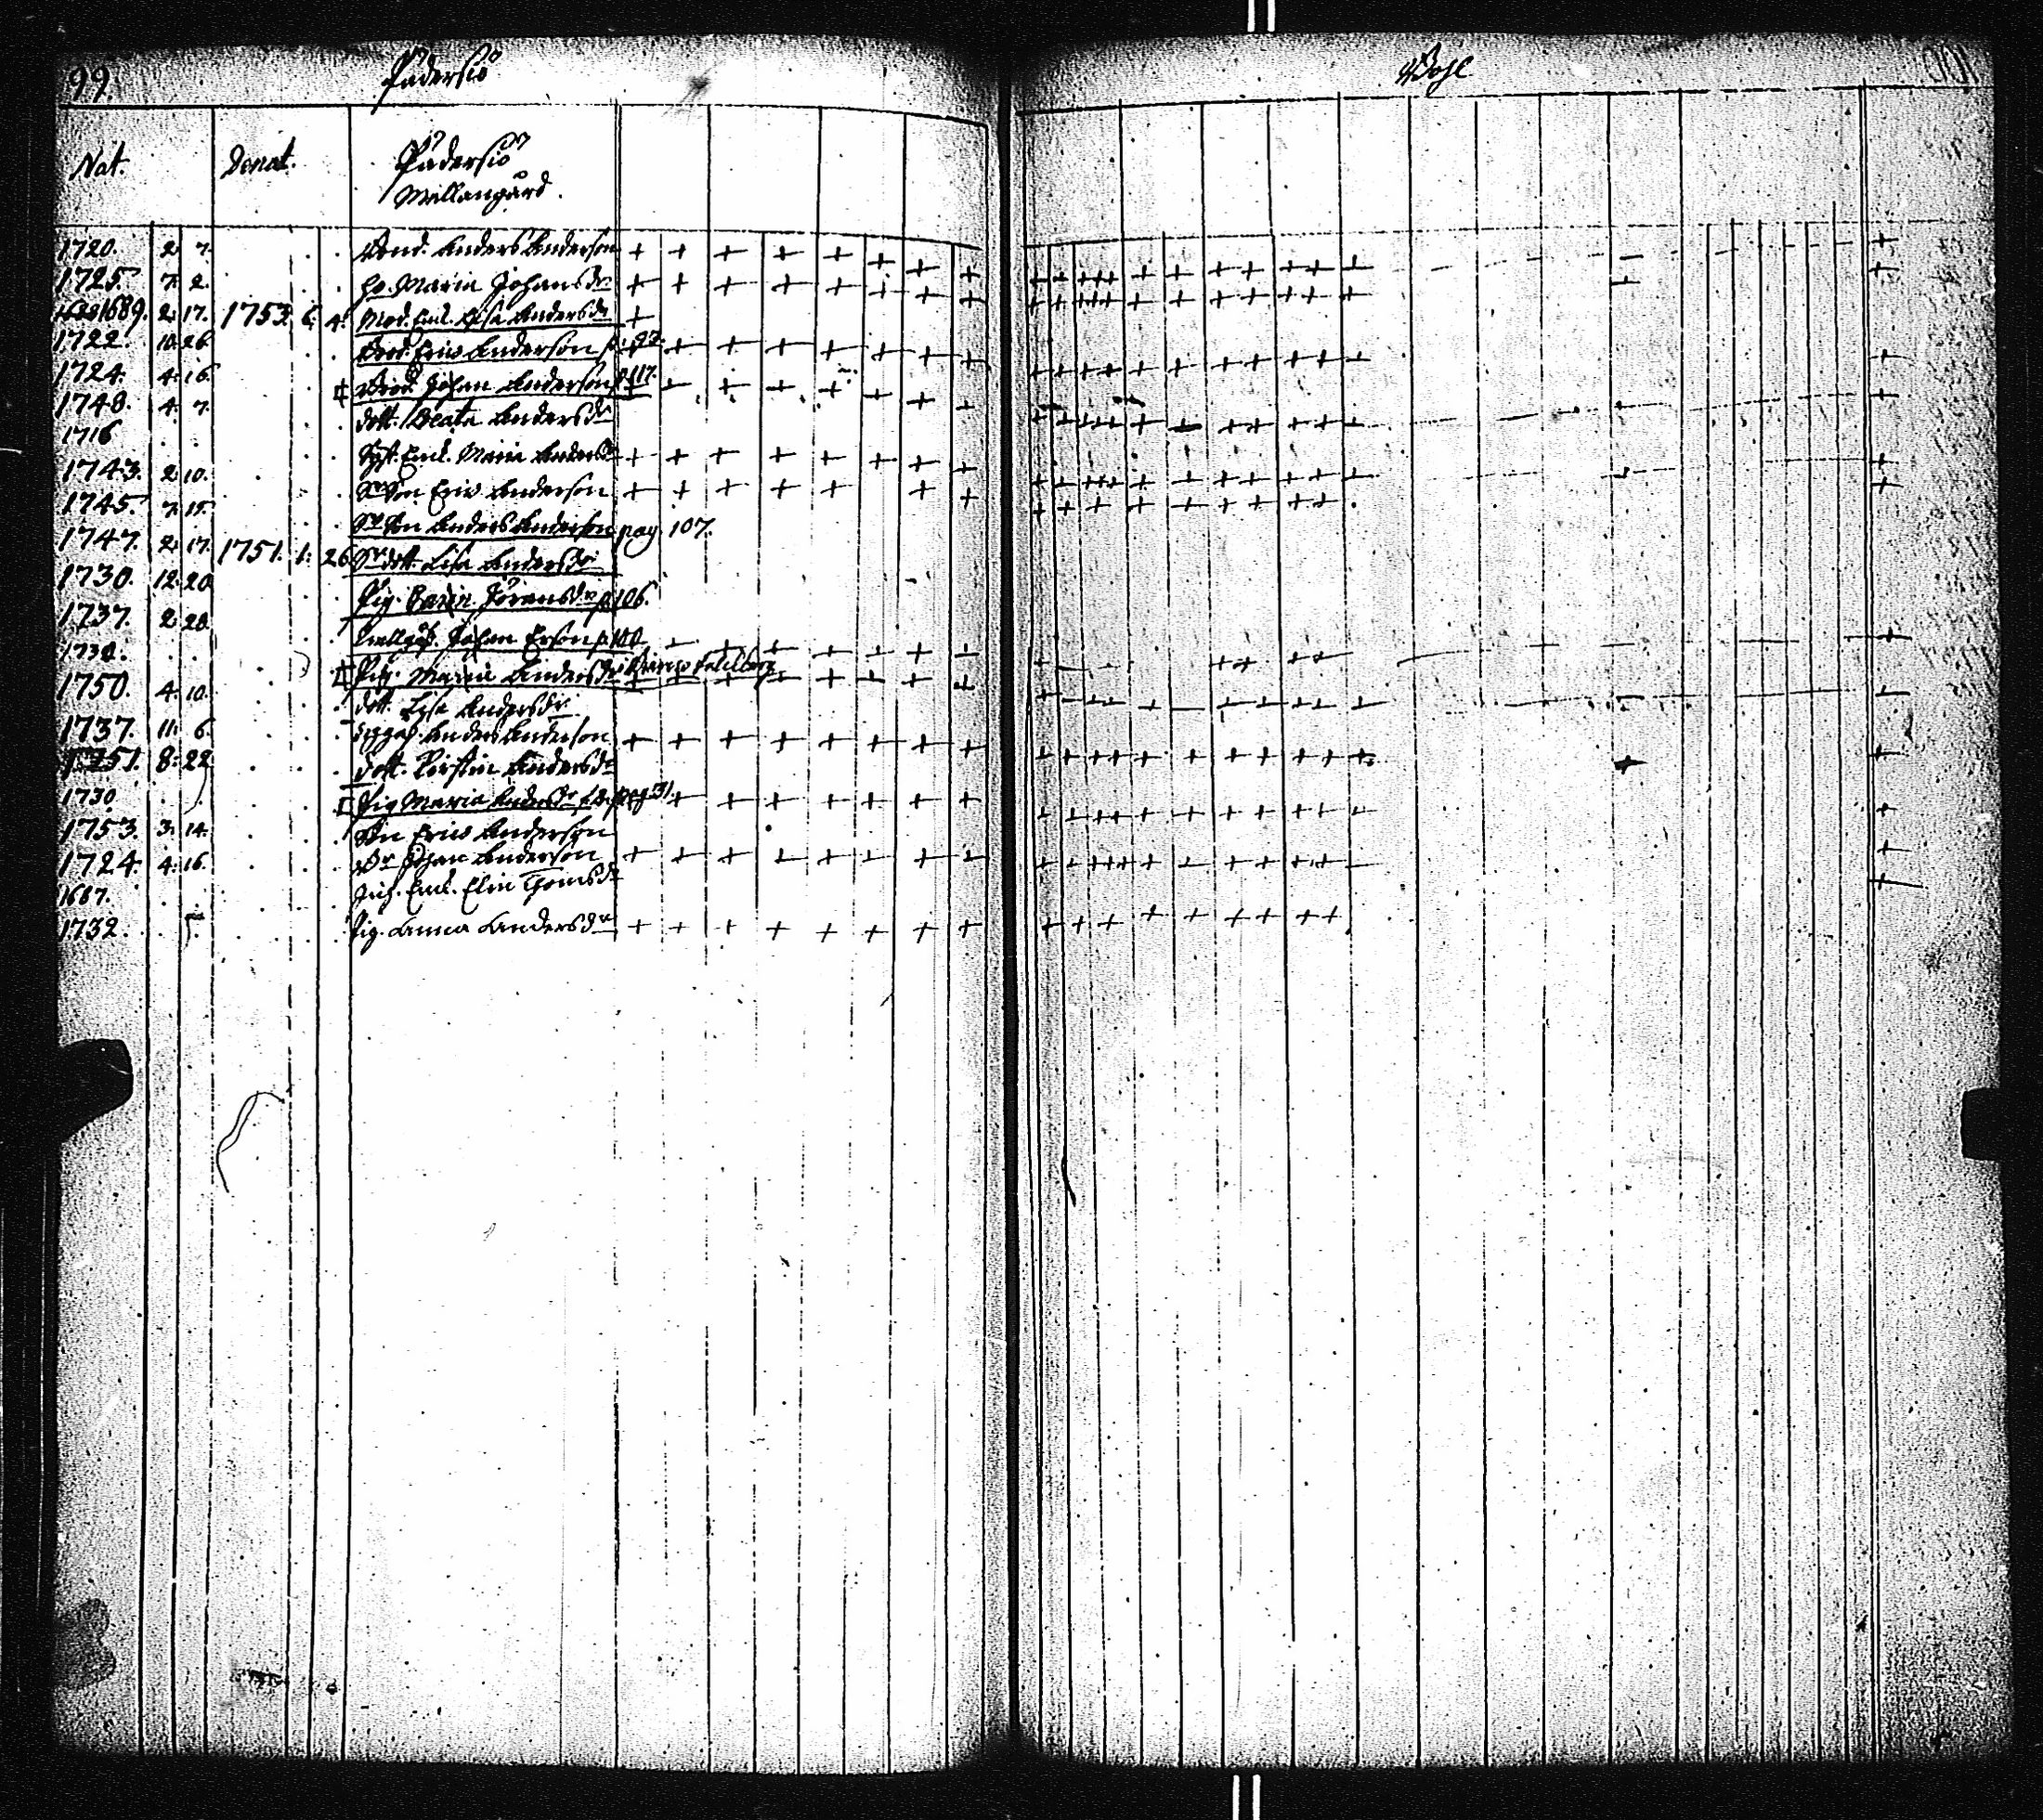 99.
Padersiö
Wohl
Nat. Denat. Padersiö
Mellangård.
1720. 2. 7. Bond. Anders Anderson
1725. 7. 2. Ho. Maria Johansdr
1689. 2. 17. 1753. 6. 4. Mod. Enk. Lisa Andersdr
1722. 10. 26 Brod. Eric Anderson p. 22.
1724. 4. 16. Brod. Johan Anderson p. 117.
1748. 4. 7. dott. Beata Andersdr
1716 Enk. Maria Andersdr
1743. 2. 10. Sr Son Eric Anderson
1745. 7. 15. Sr Son Anders Anderson pag. 107.
1747. 2. 17. 1751. 1. 26. Sr dott. Lisa Andersdr
1730. 12. 20 Pig. Göransdr p. 106.
1737. 2. 20. Johan Erson p. 100
Pig. Maria Andersdr
1750. 4. 10. dott. Lisa Andersdr
1737. 11. 6. Anders Anderson
1751. 8. 22 dott. Kirstin Andersdr
1730 Pig Maria Andersdr pag 31.
1753. 3. 14. Son Eric Anderson
1724. 4. 16. Br Johan Anderson
1687. Inh. Enk. Elin Thomsdr
1732. Pig. Anna Andersdr